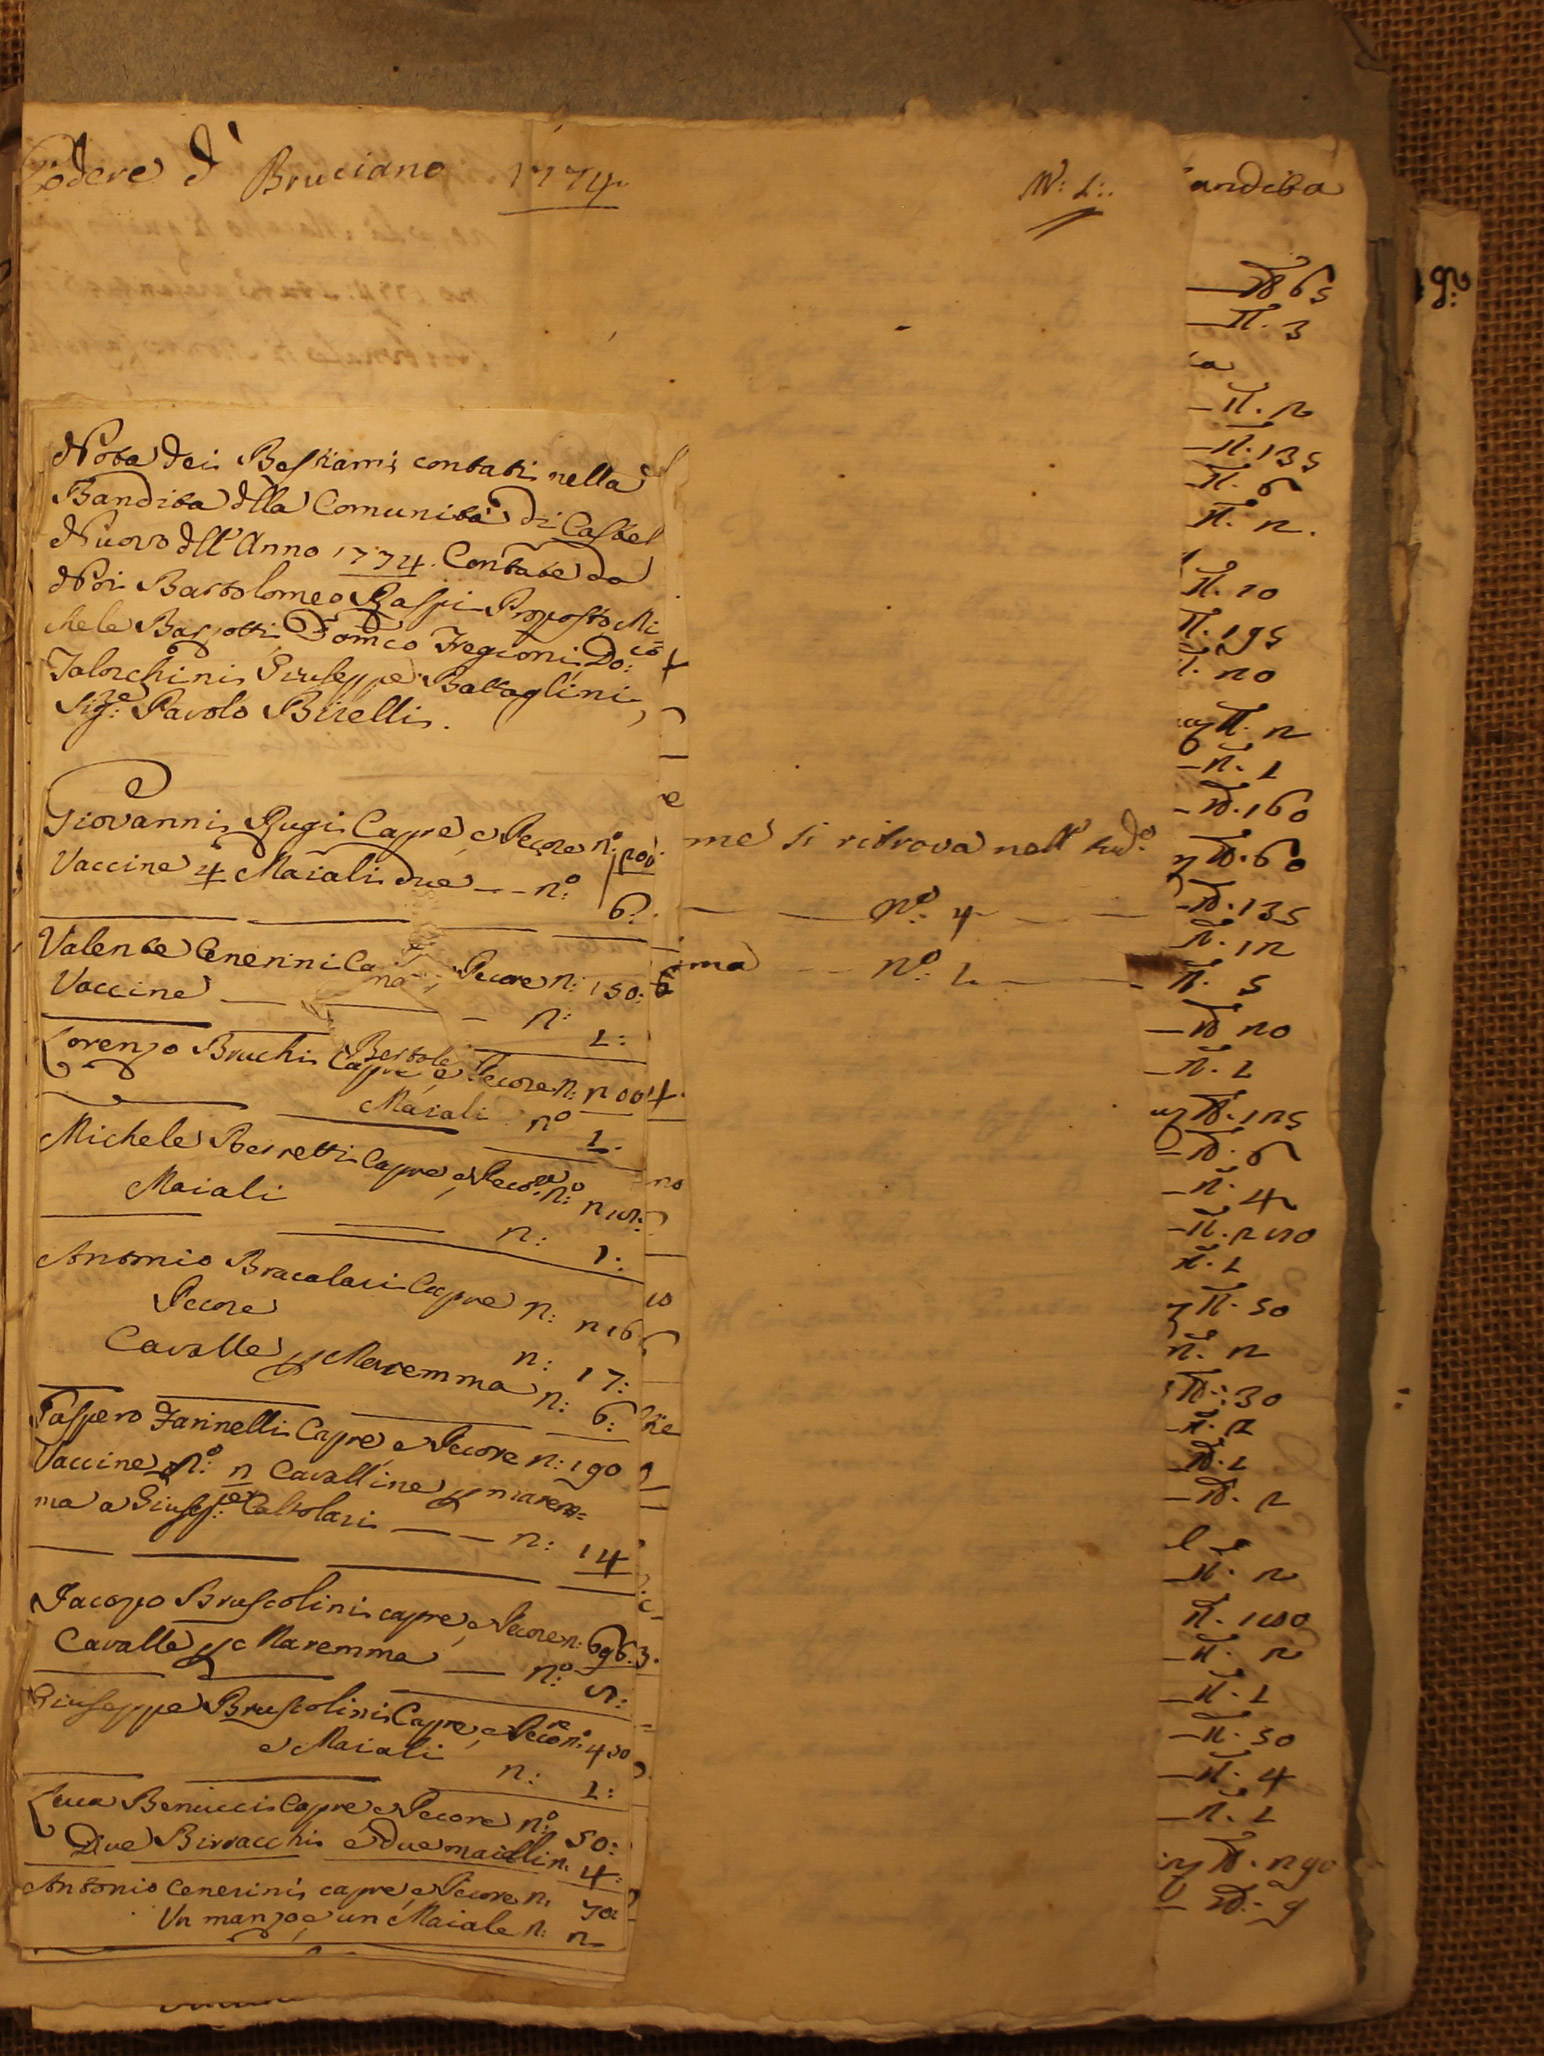 Podere d' Bruciano 1774
N: 1:.
andita
Nota dei Bestiami contati nella
Bandita dlla Comunità di Castel
Nuovo dll' Anno 1774. Contate da
Noi Bartolomeo Raspi Proposto Mi
chele Domco Fregioni Do:co
Giuseppe Battaglini
Sig:re Pavolo Birelli.
Giovanni Rugi Capre, e Pecore n:o 200
Vaccine 4 Maiali due n:o 6:
Valente Cenerini Pecore n: 150:
Vaccine n: 1:
Lorenzo Bruchi Bertole
Capre, e Pecore n: 200
Maiali n:o 1:
Michele Capre, e Pecor n:o
Maiali n: 1:
Antonio Bracalari Capre n: 216
Pecore n: 17:
Cavalle p Maremma n: 6:
Gaspero Farinelli Capre, e Pecore n: 190
Vaccine n:o 2 Cavalline p marem=
ma a Giusep:e Caltolari n: 14
Jacopo Bruscolini capre, e Pecore n: 696
Cavalle p Maremma n:o 5:
Giuseppe Bruscolini Capre, e Pecore n: 450
e Maiali n: 1:
Luca Benucci Capre e Pecore n:o 50:
Due Birracchi e due maialli n. 4:
Antonio Cenerini capre, e Pecore n: 70:
Un manzo, e un Maiale n: 2
me si ritrova nell' sud:o
N:o 4
ma n:o 1
N 65
N. 3
N. 2
N. 135
N. 6
N. 2.
N. 10
N. 195
20
N. 2
N. 1
N. 160
N. 60
N. 135
N. 12
N. 5
N 20
N. 1
N. 125
N. 6
N. 4
N. 1
N. 50
N. 2
N. 30
N. 2
N. 1
N. 2
N. 2
N. 2
N. 1
N. 50
N. 4
N. 1
N. 290
N. 9